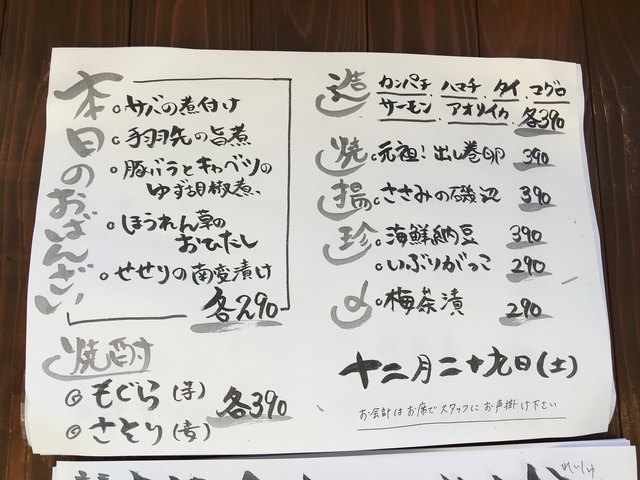 本日のおばんざい
。サバの煮付け
。手羽先の旨煮
。豚バラとキャベツの
ゆず胡椒煮、
。ほうれん草の
おひたし
。せせりの南蛮漬け
各290
焼酎
もぐら (芋)
さそり (麦)
各390
造
カンパチ ハマチ タイ マグロ
サーモン アオリイカ 各390
焼 。元祖!出し巻卵 390
揚 。ささみの磯辺 390
珍 。海鮮納豆 390
。いぶりがっこ 290
〆 。梅茶漬 290
十二月二十九日(土)
お会計はお席でスタッフにお声掛け下さい